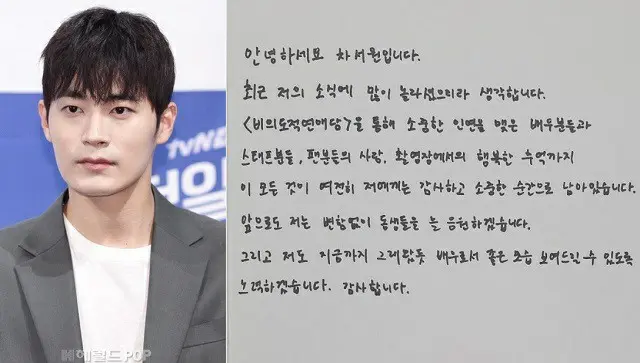 tvN
안녕하세요 차서원입니다.
최근 저의 소식에 많이 놀라셨으리라 생각합니다.
<비의도적연애담>을 통해 소중한 인연을 맺은 배우분들과
스태프분들, 팬분들의 사랑, 촬영장에서의 행복한 추억까지
이 모든 것이 여전히 저에게는 감사하고 소중한 순간으로 남아있습니다.
앞으로도 저는 변함없이 동생들을 늘 응원하겠습니다.
그리고 저도 지금까지 그래왔듯 배우로서 좋은 모습 보여드릴 수 있도록
노력하겠습니다. 감사합니다.
헤럴드 POP